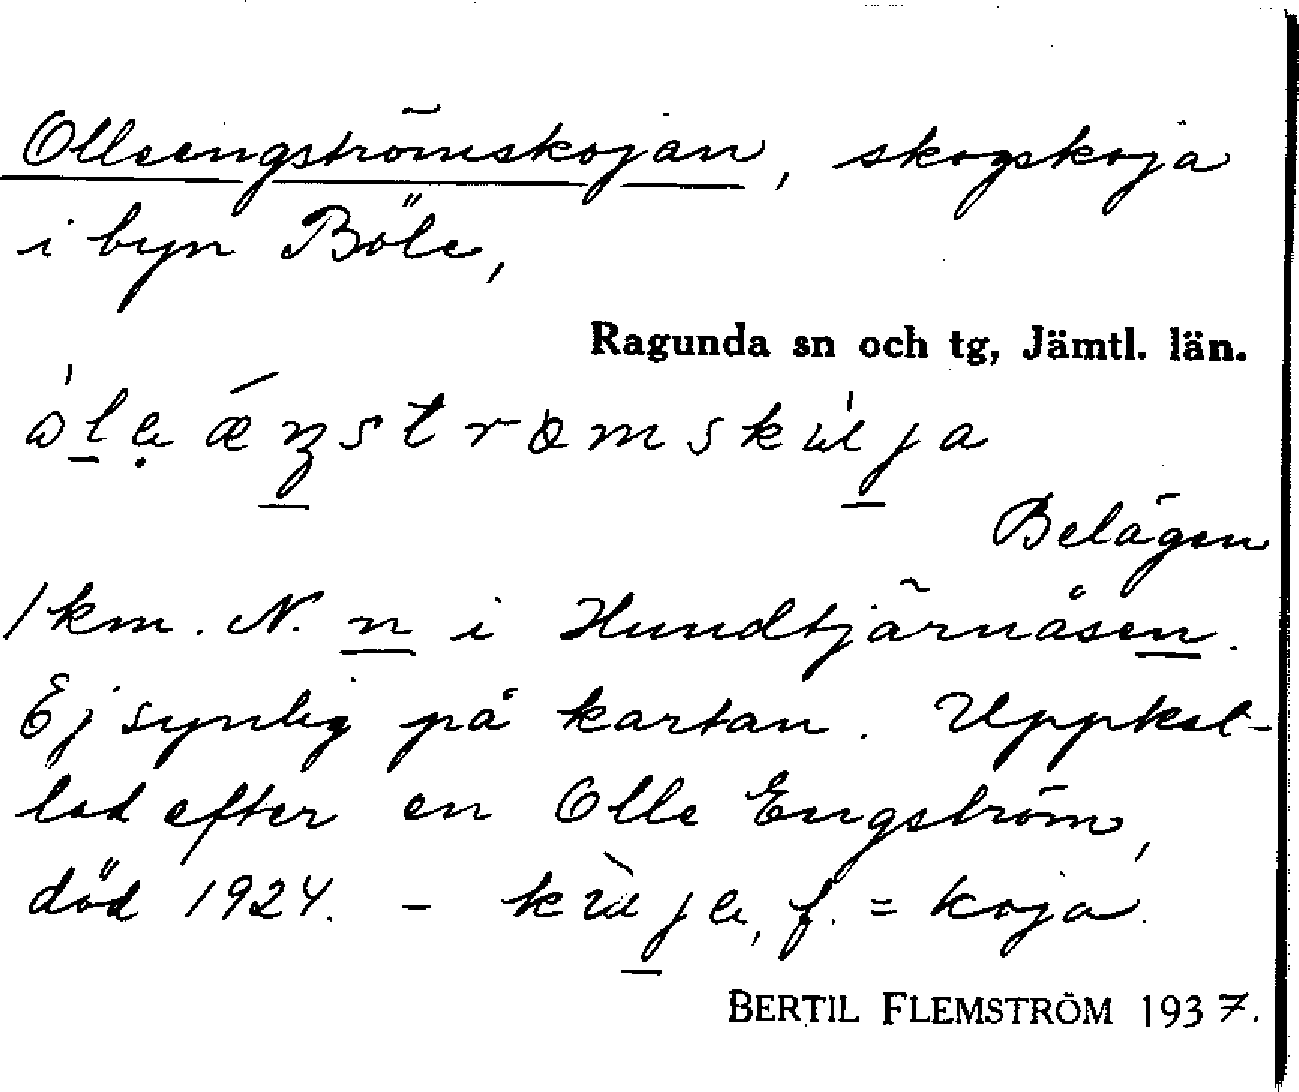 Olleengströmskojan, skogskoja
i byn Böle,
Ragunda sn och tg, Jämtl. län.
Belägen
1 km. N. n i Hundtjärnåsen.
Ej synlig på kartan. Uppkal-
lad efter en Olle Engström,
död 1924. – f. = koja.
BERTIL FLEMSTRÖM 1937.